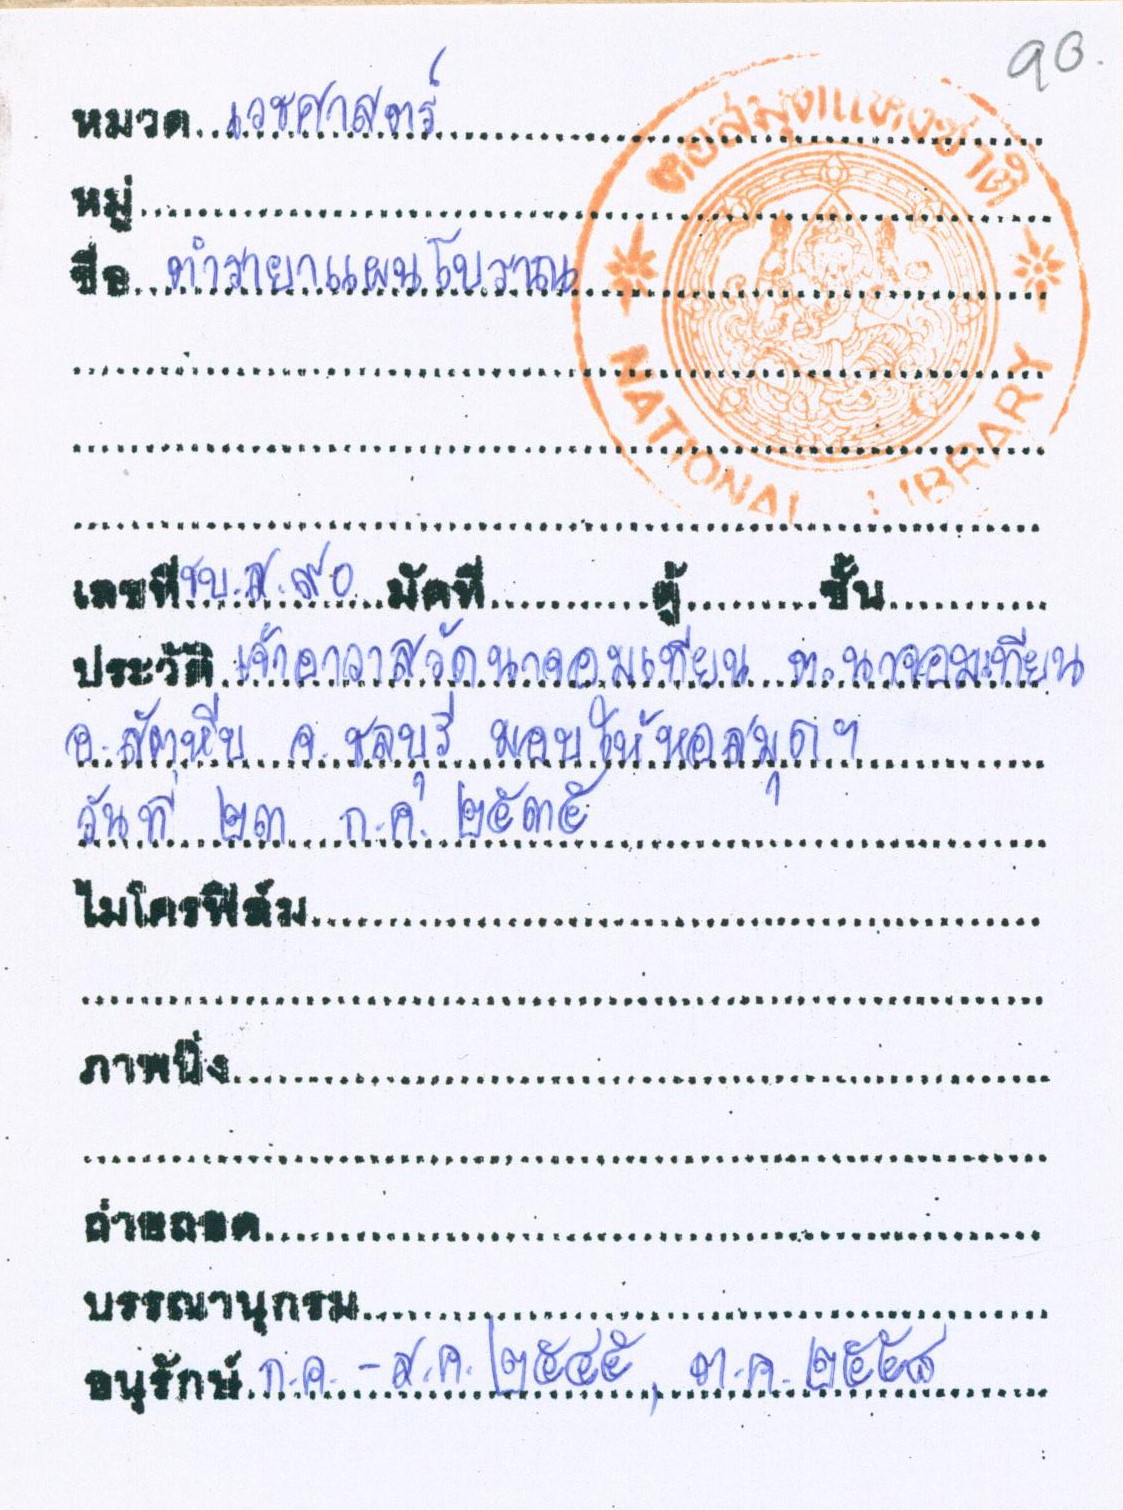 ๑๐.
หอสมุดแห่งชาติ
NATIONAL LIBRARY
หมวด เวชศาสตร์
หมู่
ชื่อ ตำรายาแผนโบราณ
เลขที่ ชบ.ส.๙๐ มัดที่ ตู้ ชั้น
ประวัติ เจ้าอาวาสวัดนาจอมเทียน ต.นาจอมเทียน
อ.สัตหีบ จ.ชลบุรี มอบให้หอสมุดฯ
วันที่ ๒๓ ก.ค. ๒๕๓๕
ไมโครฟิล์ม
ภาพนิ่ง
ถ่ายถอด
บรรณานุกรม
อนุรักษ์ ก.ค. - ส.ค. ๒๕๔๕, ต.ค.